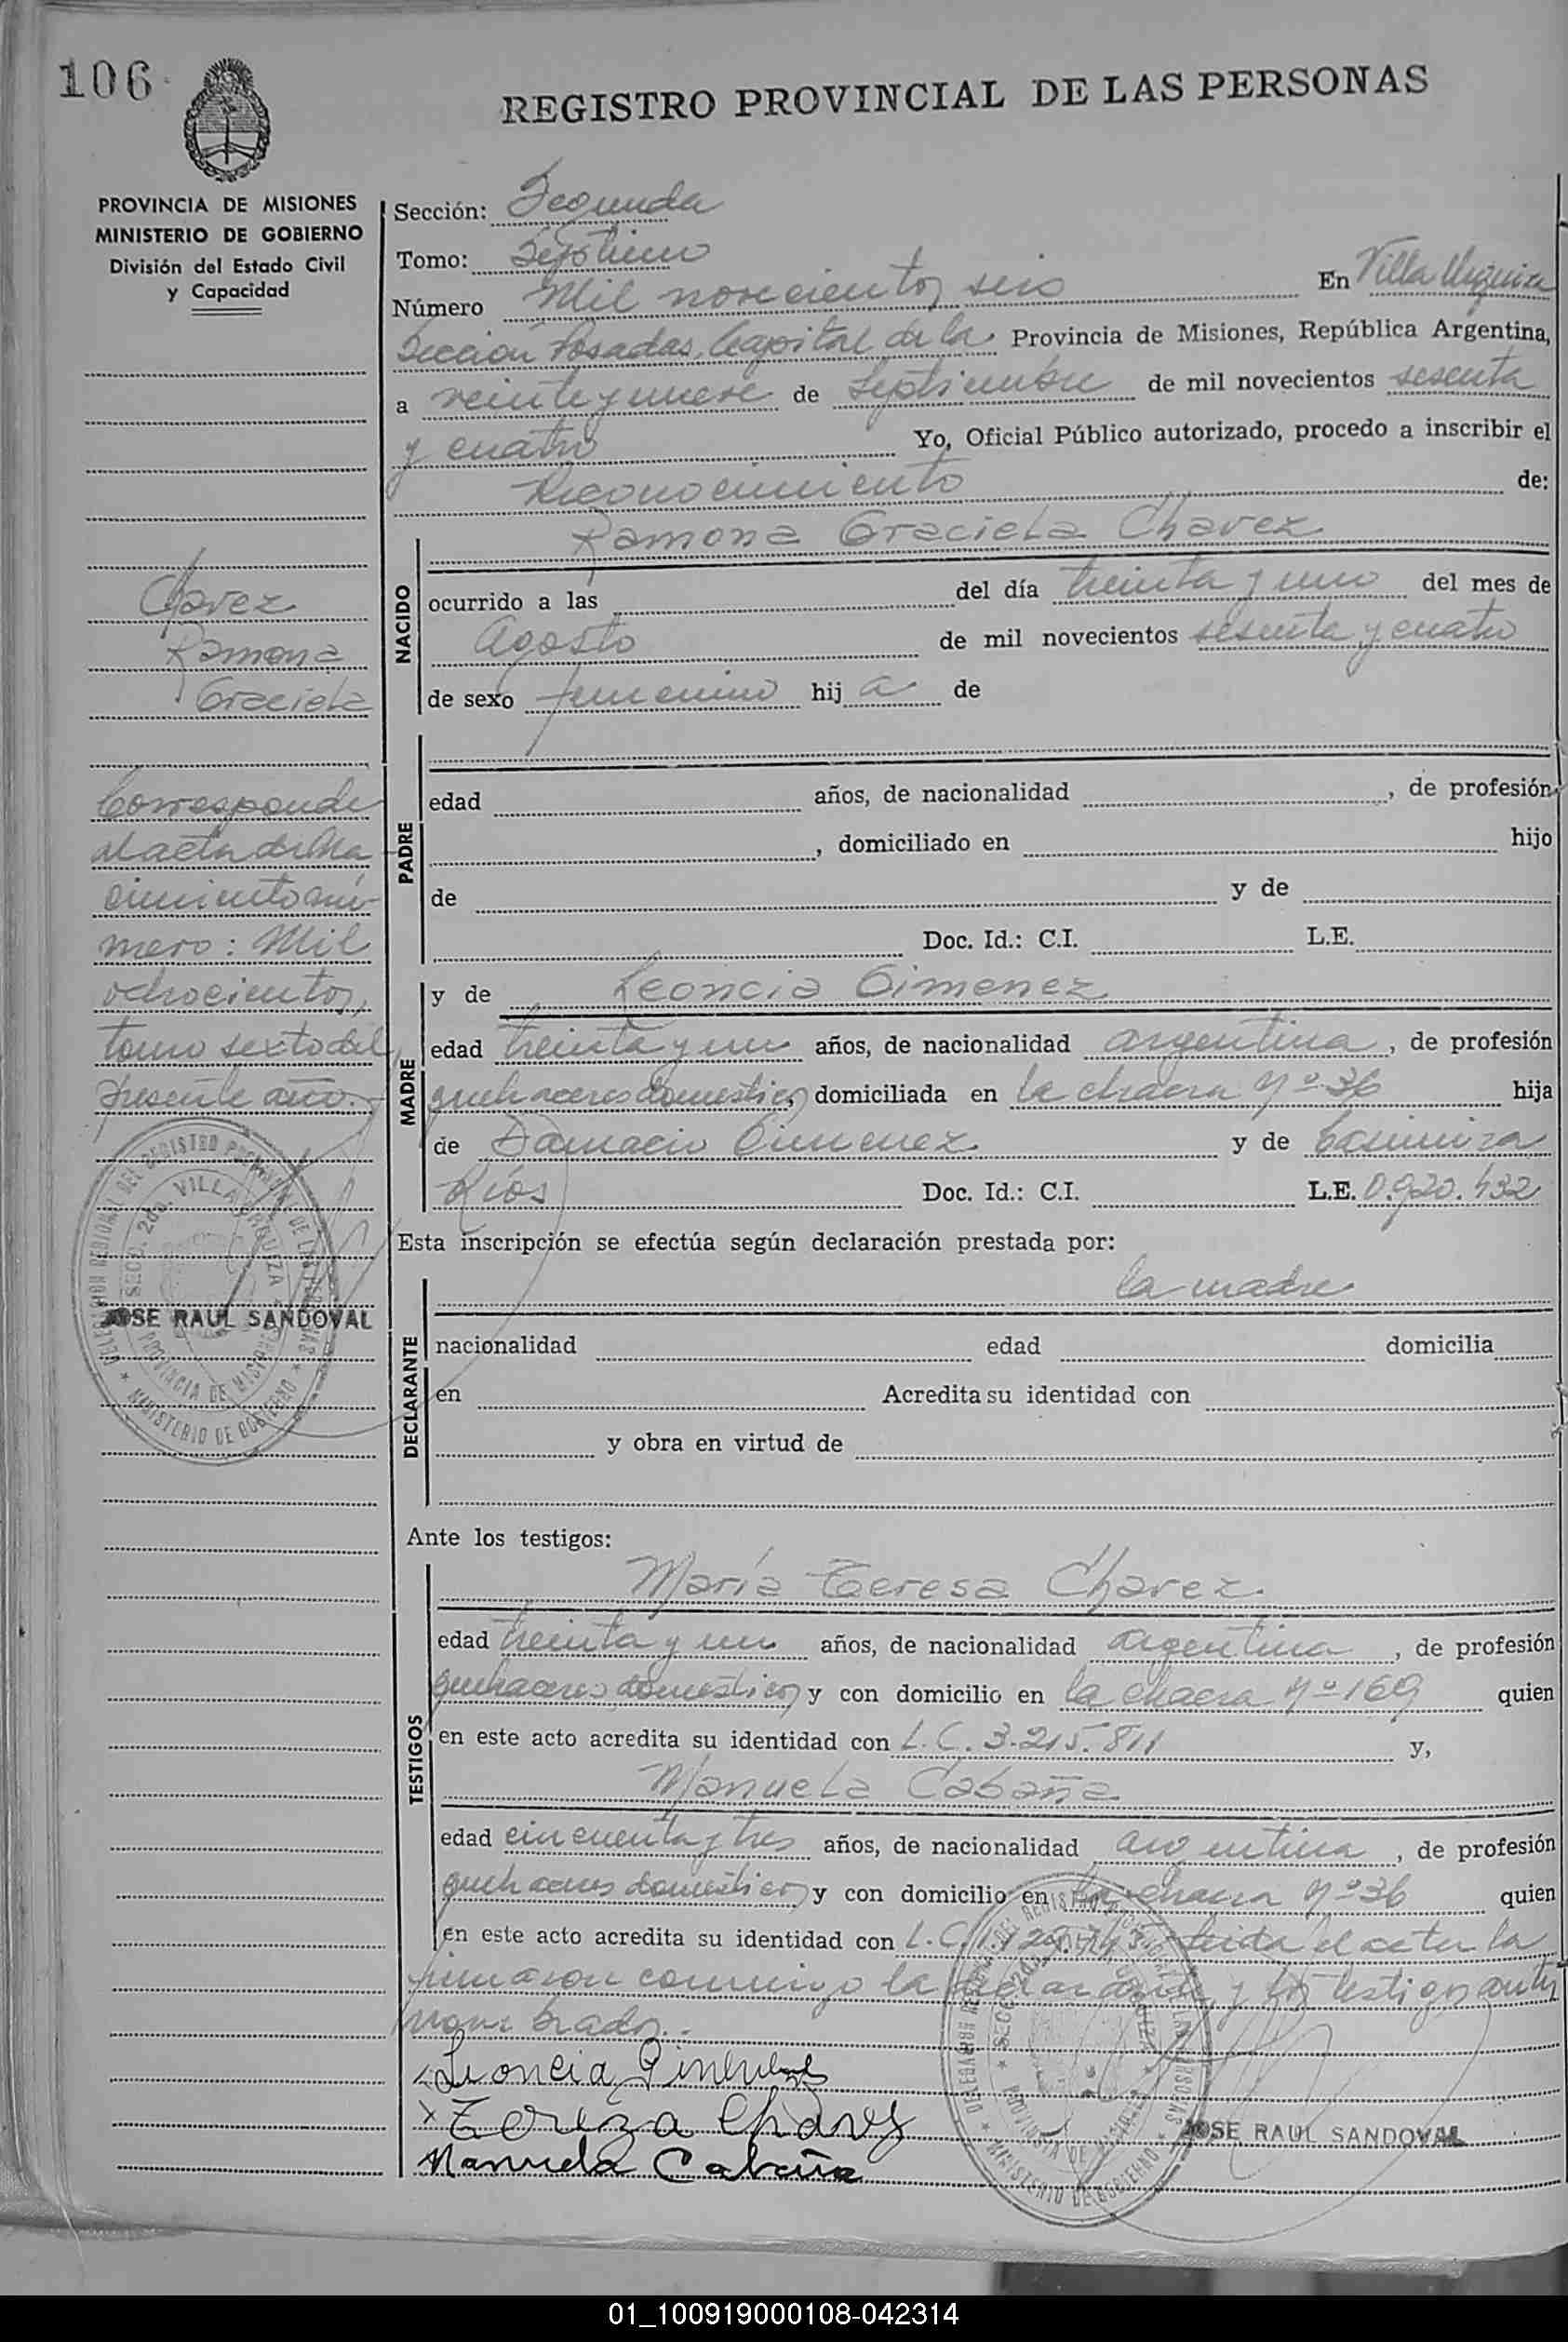 106
REGISTRO PROVINCIAL DE LAS PERSONAS
PROVINCIA DE MISIONES
MINISTERIO DE GOBIERNO
División del Estado Civil
y Capacidad
Chavez
Ramona
Graciela
Corresponde
al acta de Na
cimiento nú-
mero: Mil
ochocientos,
tomo sexto del
presente año.-
DELEGACION REGIONAL DEL REGISTRO PROVINCIAL DE LAS PERSONAS
SECC. 2da. VILLA URQUIZA
PROVINCIA DE MISIONES
MINISTERIO DE GOBIERNO
JOSE RAUL SANDOVAL
Sección: Segunda
Tomo: Séptimo
Número Mil novecientos seis En Villa Urquiza
Sección Posadas, Capital de la Provincia de Misiones, República Argentina,
a veinte y nueve de Septiembre de mil novecientos sesenta
y cuatro Yo, Oficial Público autorizado, procedo a inscribir el
Reconocimiento de:
NACIDO
Ramona Graciela Chavez
ocurrido a las del día treinta y uno del mes de
Agosto de mil novecientos sesenta y cuatro
de sexo femenino hij a de
PADRE
edad años, de nacionalidad , de profesión
, domiciliado en hijo
de y de
Doc. Id.: C.I. L.E.
MADRE
y de Leoncia Gimenez
edad treinta y un años, de nacionalidad argentina , de profesión
quehaceres domesticos domiciliada en la chacra Nº 36 hija
de Damacio Gimenez y de Casimira
Ríos Doc. Id.: C.I. L.E. 0.920.432
Esta inscripción se efectúa según declaración prestada por:
DECLARANTE
la madre
nacionalidad edad domicilia
en Acredita su identidad con
y obra en virtud de
Ante los testigos:
TESTIGOS
María Teresa Chavez
edad treinta y un años, de nacionalidad argentina , de profesión
quehaceres domesticos y con domicilio en la chacra Nº 169 quien
en este acto acredita su identidad con L.C. 3.215.811 y,
Manuela Cabaña
edad cincuenta y tres años, de nacionalidad argentina , de profesión
quehaceres domesticos y con domicilio en la chacra Nº 36 quien
en este acto acredita su identidad con L.C. leida el acta la
firmaron conmigo la declarante y los testigos antes
nombrados.-
Leoncia Gimenez
x Tereza Chavez
Manuela Cabaña
DELEGACION REGIONAL DEL REGISTRO PROVINCIAL DE LAS PERSONAS
SECC. 2da. VILLA URQUIZA
PROVINCIA DE MISIONES
MINISTERIO DE GOBIERNO
JOSE RAUL SANDOVAL
01_100919000108-042314